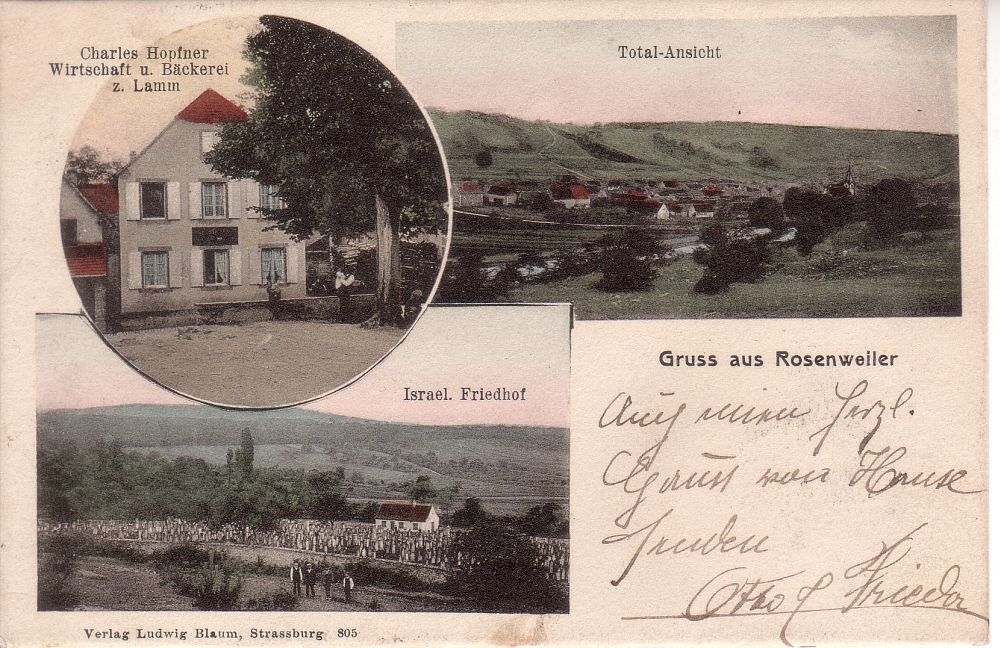 Charles Hopfner
Wirtschaft u. Bäckerei
z. Lamm
Total-Ansicht
Israel. Friedhof
Gruss aus Rosenweiler
Auch einen herzl.
Gruss von Hause
senden
Otto
Verlag Ludwig Blaum, Strassburg 805